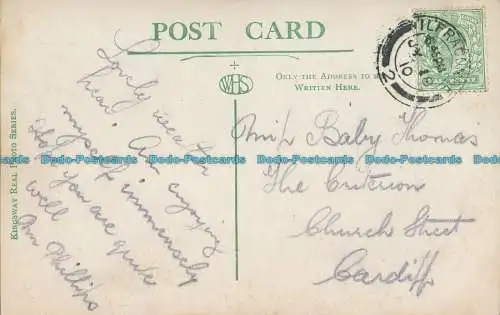 POST CARD
ILFRACOMBE
10
2
WHS
ONLY THE ADDRESS TO BE
WRITTEN HERE.
KINGSWAY REAL PHOTO SERIES.
Lovely weather
here. Am enjoying
myself immensely
you are quite
well
Phillips
Miss Baby Thomas
The Criterion
Church Street
Cardiff
Dodo-Postcards Dodo-Postcards Dodo-Postcards Dodo-Postcards